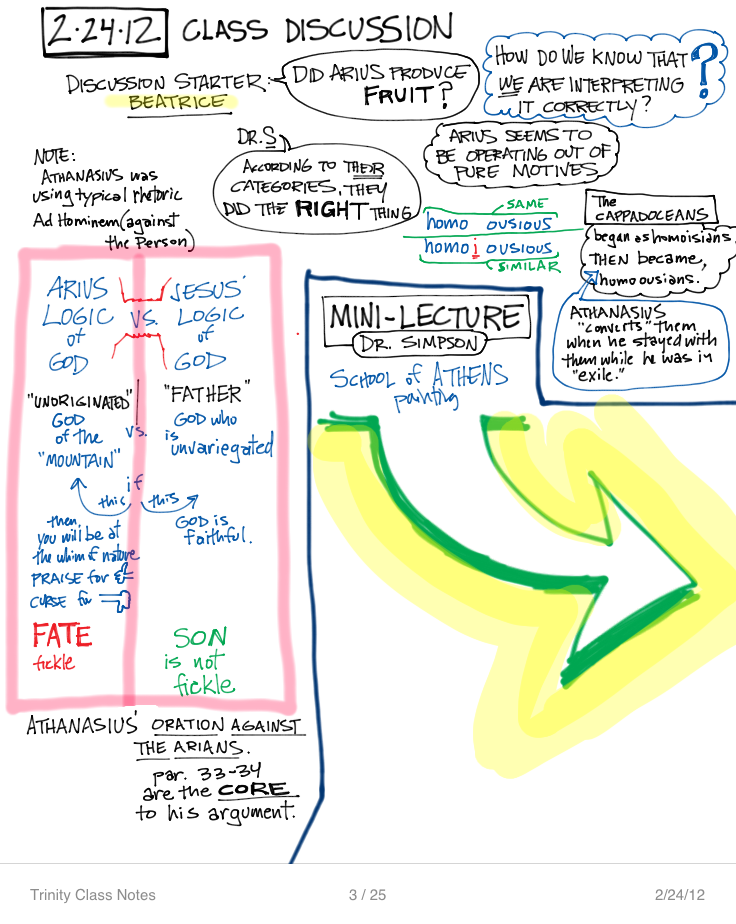 2.24.12 CLASS DISCUSSION
DISCUSSION STARTER:
BEATRICE
DID ARIUS PRODUCE
FRUIT?
HOW DO WE KNOW THAT
WE ARE INTERPRETING
IT CORRECTLY?
?
NOTE:
ATHANASIUS was
using typical rhetoric
Ad Hominem (against
the Person)
DR. S
ACCORDING TO THEIR
CATEGORIES, THEY
DID THE RIGHT THING
ARIUS SEEMS TO
BE OPERATING OUT OF
PURE MOTIVES
SAME
homo ousious
homo i ousious
SIMILAR
The
CAPPADOCEANS
began as homoisians,
THEN became,
homoousians.
ATHANASIUS
"converts" them
when he stayed with
them while he was in
"exile."
ARIUS VS. JESUS'
LOGIC LOGIC
of of
GOD GOD
"UNORIGINATED"
GOD
of the
"MOUNTAIN"
vs.
"FATHER"
GOD who
is
unvariegated
if
this this
then,
you will be at
the whim of nature
PRAISE for
CURSE for
GOD is
faithful.
FATE
fickle
SON
is not
fickle
ATHANASIUS' ORATION AGAINST
THE ARIANS.
par. 33-34
are the CORE
to his argument.
MINI-LECTURE
DR. SIMPSON
SCHOOL of ATHENS
painting
Trinity Class Notes 3 / 25 2/24/12